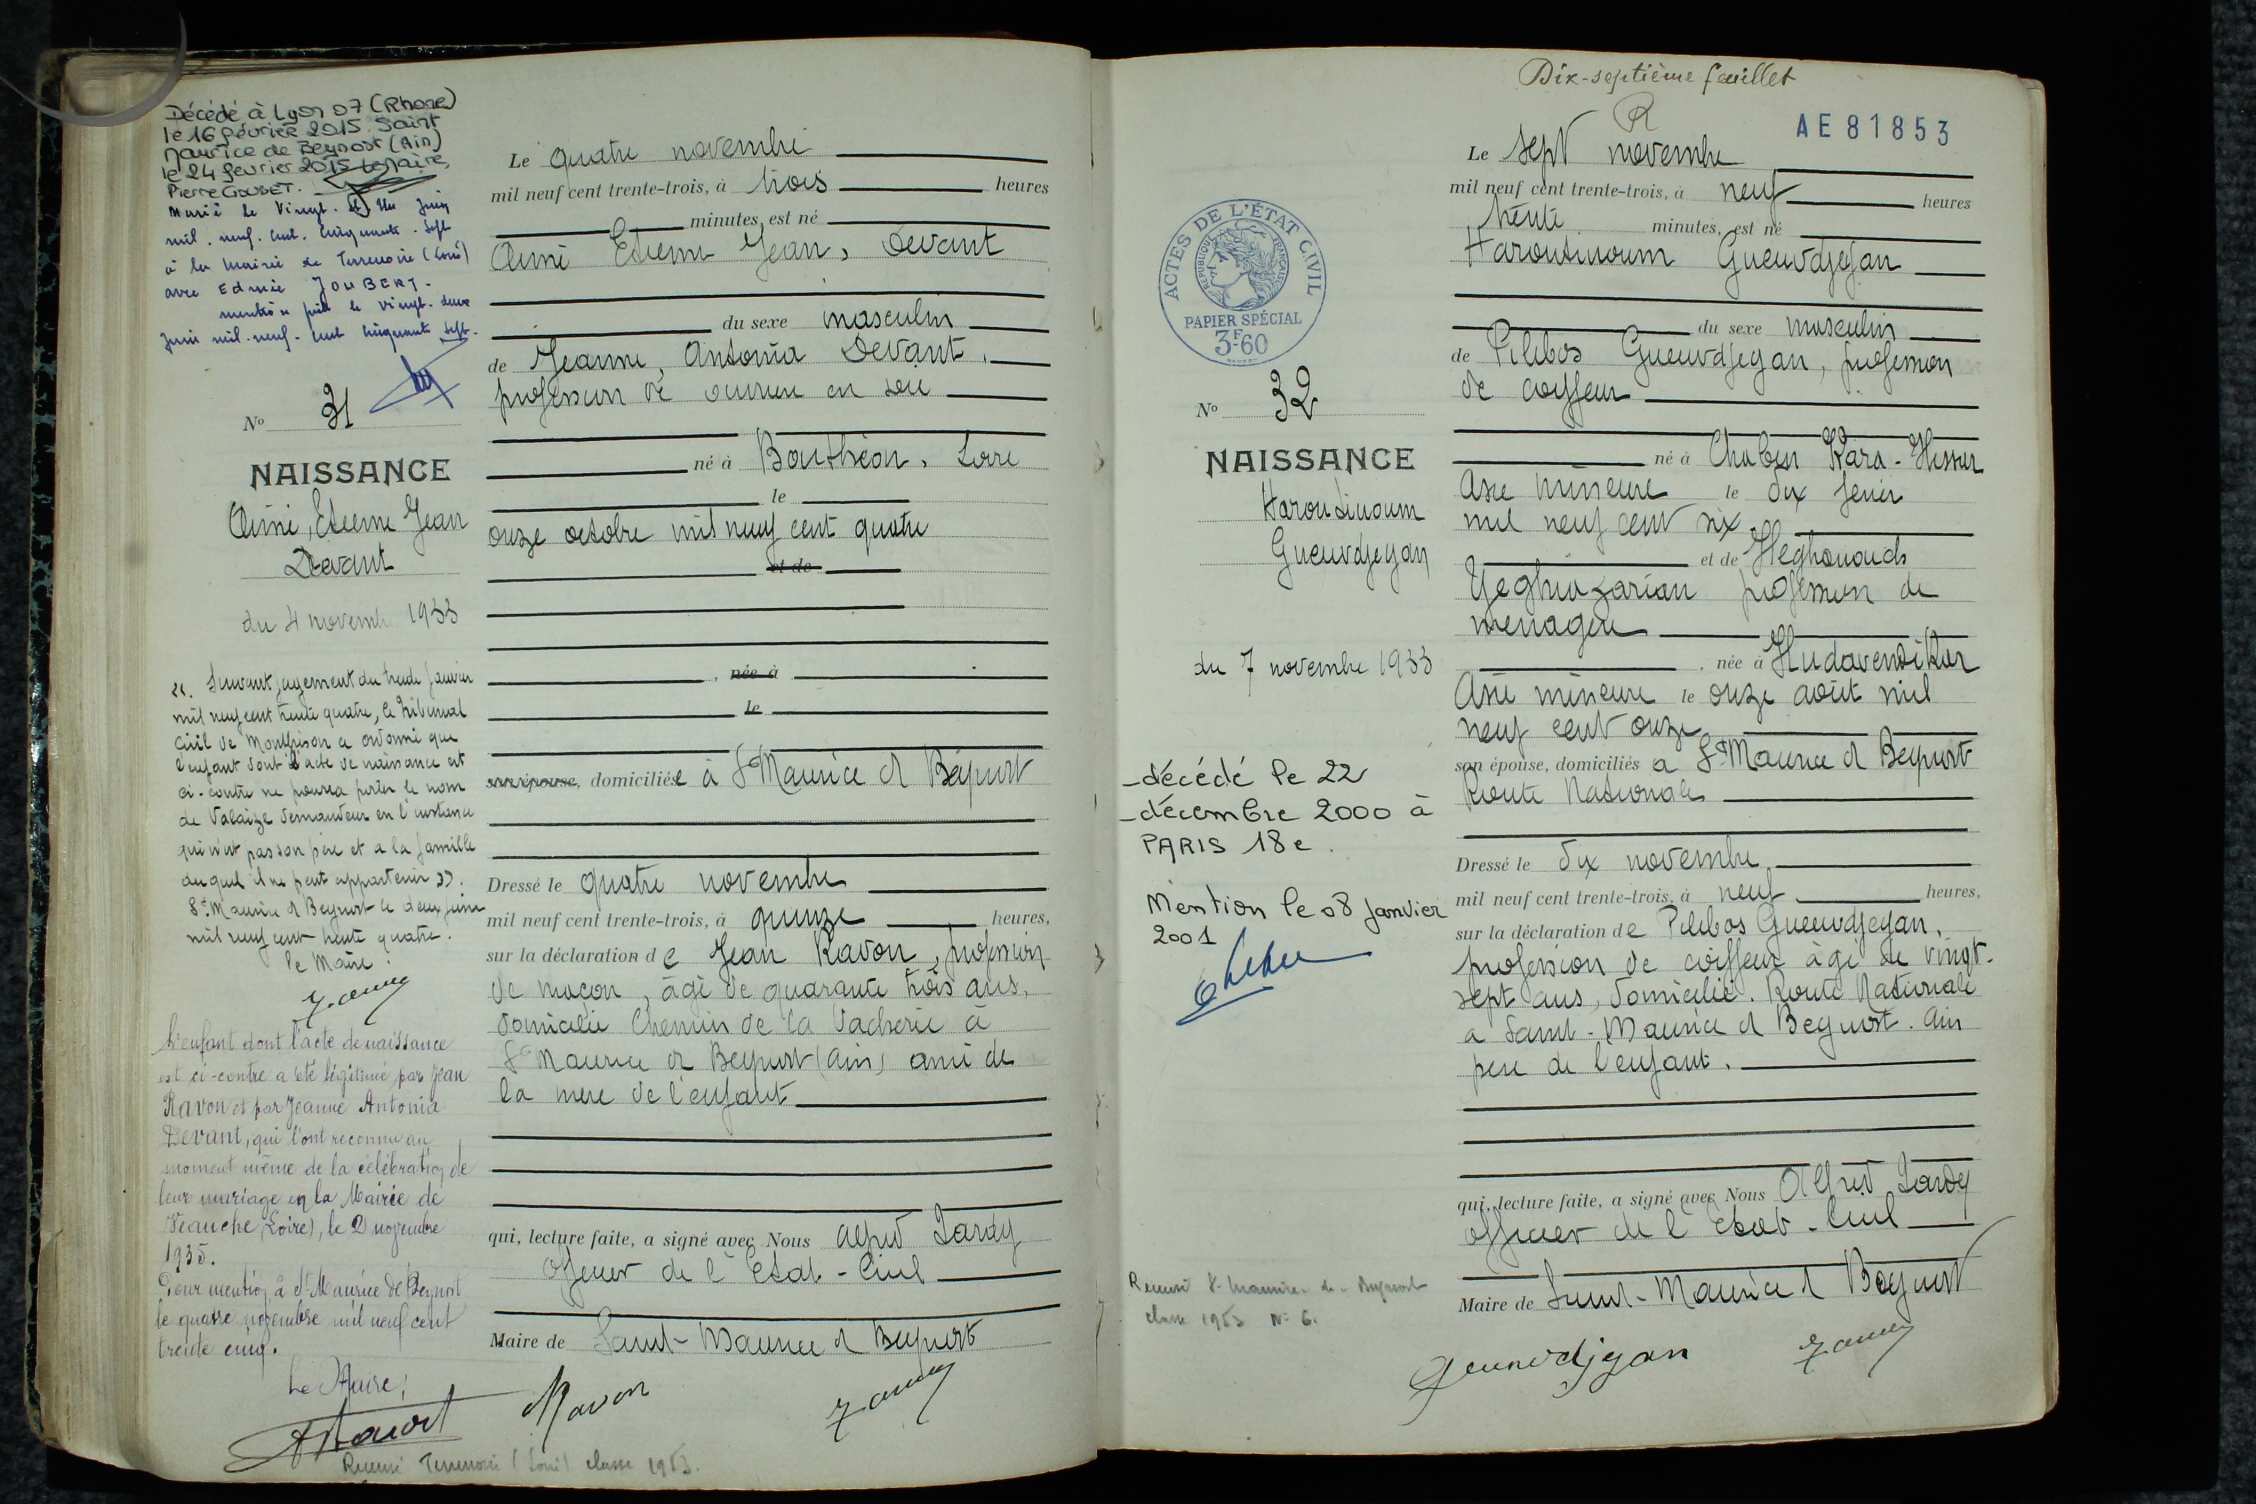 Décédé à Lyon 07 (Rhône)
le 16 février 2015. Saint
Maurice de Beynost (Ain)
le 24 février 2015 Le Maire,
Pierre GOUBET.
Marié le Vingt. et Un Juin
mil. neuf. cent. cinquante. sept
à la Mairie de Terrenoire (Loire)
avec Edmée JOUBERT.
mention faite le vingt. deux
Juin mil. neuf. cent cinquante sept.
No 31
NAISSANCE
Aimé, Etienne Jean
Devant
du 4 novembre 1933
"Suivant jugement du treize janvier
mil neuf cent trente quatre, le Tribunal
civil de Montbrison a ordonné que
l'enfant dont l'acte de naissance est
ci-contre ne pourra porter le nom
de Valaize demandeur en l'instance
qui n'est pas son père et a la famille
duquel il ne peut appartenir".
St Maurice d Beynost le deux juin
mil neuf cent trente quatre.
le Maire:
L'enfant dont l'acte de naissance
est ci-contre a été légitimé par Jean
Ravon et par Jeanne Antonia
Devant, qui l'ont reconnu au
moment même de la célébration de
leur mariage en la Mairie de
Veauche (Loire), le 2 novembre
1935.
Pour mention, à St Maurice de Beynost
le quatre novembre mil neuf cent
trente cinq.
Le Maire;
Le quatre novembre
mil neuf cent trente-trois, à trois heures
minutes, est né
Aimé Etienne Jean, Devant
du sexe masculin
de Jeanne, Antonia Devant,
profession de ouvrière en soie
né à Bouthéon, Loire
le
onze octobre mil neuf cent quatre
et de
, née à
le
son épouse, domiciliée à St Maurice d Beynost
Dressé le quatre novembre
mil neuf cent trente-trois, à quinze heures,
sur la déclaration de Jean Ravon, profession
de maçon, âgé de quarante trois ans,
domicilié Chemin de la Vacherie à
St Maurice d Beynost (Ain) ami de
la mère de l'enfant
qui, lecture faite, a signé avec Nous Alfred Jardy
officier de l'Etat-Civil
Maire de Saint-Maurice d Beynost
Ravon
Recensé Terrenoire (Loire) classe 1953.
Dix-septième feuillet
R
AE81853
ACTES DE L'ÉTAT CIVIL
RÉPUBLIQUE FRANÇAISE
PAPIER SPÉCIAL
3F60
No 32
NAISSANCE
Haroutinoum
Gueuvdjeyan
du 7 novembre 1933
décédé le 22
décembre 2000 à
PARIS 18e.
Mention le 08 janvier
2001
Recensé St Maurice-de-Beynost
classe 1953 No 6.
Le sept novembre
mil neuf cent trente-trois, à neuf heures
trente minutes, est né
Haroutinoum Gueuvdjeyan
du sexe masculin
de Pilibos Gueuvdjeyan, profession
de coiffeur
né à Chabin Kara-Hissar
Asie mineure le dix février
mil neuf cent six
et de Heghnouch
Yeghiazarian profession de
ménagère
, née à Hudavendikar
Asie mineure le onze août mil
neuf cent onze
son épouse, domiciliés à St Maurice d Beynost
Route Nationale
Dressé le dix novembre
mil neuf cent trente-trois, à neuf heures,
sur la déclaration de Pilibos Gueuvdjeyan,
profession de coiffeur âgé de vingt-
sept ans, domicilié. Route Nationale
à Saint-Maurice d Beynost. Ain
père de l'enfant.
qui, lecture faite, a signé avec Nous Alfred Jardy
officier de l'Etat-Civil
Maire de Saint-Maurice d Beynost
Gueuvdjyan